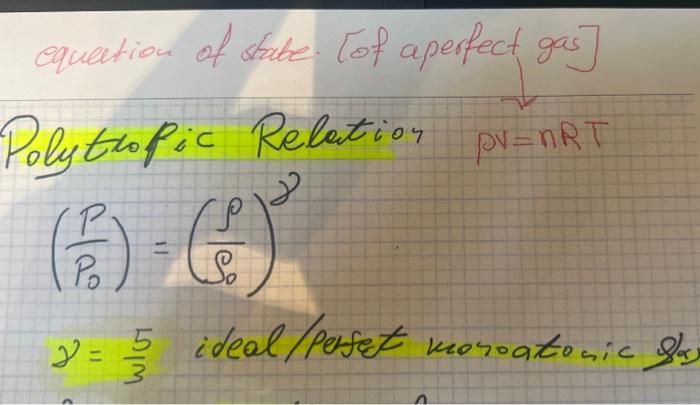 equation of state. [of a perfect gas]
Polytropic Relation
pv = nRT
(P/P₀) = (ρ/ρ₀)^γ
γ = 5/3 ideal/perfet monoatomic gas